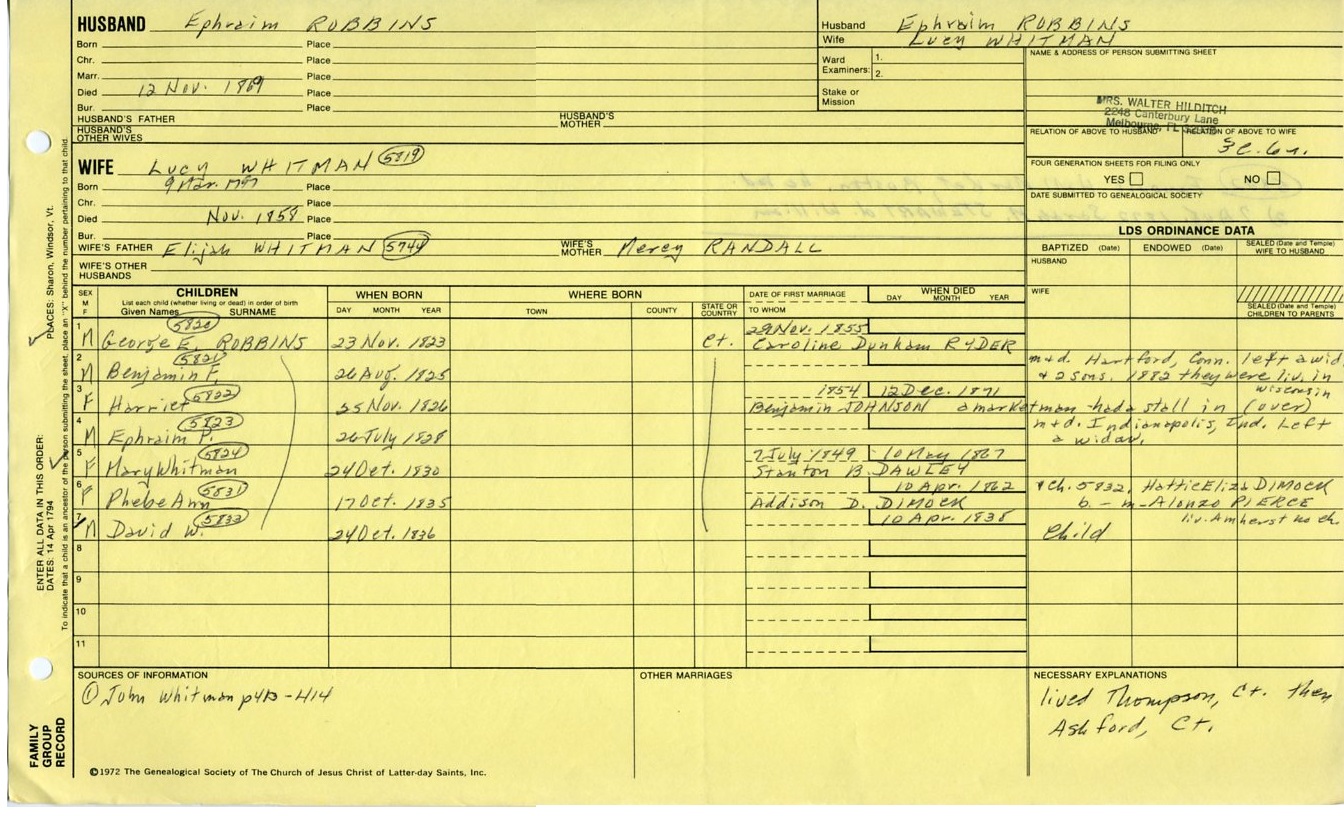 HUSBAND Ephraim ROBBINS
Born Place
Chr. Place
Marr. Place
Died 12 Nov. 1869 Place
Bur. Place
HUSBAND'S FATHER HUSBAND'S MOTHER
HUSBAND'S OTHER WIVES
Husband Ephraim ROBBINS
Wife Lucy WHITMAN
Ward Examiners: 1.
2.
Stake or Mission
NAME & ADDRESS OF PERSON SUBMITTING SHEET
MRS. WALTER HILDITCH
2248 Canterbury Lane
Melbourne, FL
RELATION OF ABOVE TO HUSBAND RELATION OF ABOVE TO WIFE
FOUR GENERATION SHEETS FOR FILING ONLY
YES NO
DATE SUBMITTED TO GENEALOGICAL SOCIETY
WIFE Lucy WHITMAN 5819
Born 9 Mar. 1797 Place
Chr. Place
Died Nov. 1858 Place
Bur. Place
WIFE'S FATHER Elijah WHITMAN 5744 WIFE'S MOTHER Mercy RANDALL
WIFE'S OTHER HUSBANDS
LDS ORDINANCE DATA
BAPTIZED (Date) ENDOWED (Date) SEALED (Date and Temple) WIFE TO HUSBAND
HUSBAND
WIFE
SEALED (Date and Temple) CHILDREN TO PARENTS
SEX M F CHILDREN WHEN BORN WHERE BORN DATE OF FIRST MARRIAGE WHEN DIED
List each child (whether living or dead) in order of birth
Given Names SURNAME DAY MONTH YEAR TOWN COUNTY STATE OR COUNTRY TO WHOM DAY MONTH YEAR
1 5820 29 Nov. 1855
M George E. ROBBINS 23 Nov. 1823 Ct. Caroline Dunham RYDER
2 5821 m+d. Hartford, Conn. left a wid.
M Benjamin F. 26 Aug. 1825 + 2 sons. 1882 they were liv. in
3 5822 1854 12 Dec. 1871 Wisconsin
F Harriet 25 Nov. 1826 Benjamin JOHNSON a marketman had a stall in (over)
4 5823 m+d. Indianapolis, Ind. Left
M Ephraim P. 26 July 1828 a widow.
5 5824 7 July 1849 10 May 1867
F Mary Whitman 24 Oct. 1830 Stanton B. DAWLEY
6 5831 10 Apr. 1862 + Ch. 5832, Hattie Eliza DIMOCK
F Phebe Ann 17 Oct. 1835 Addison D. DIMOCK b. – m- Alonzo PIERCE
7 5833 10 Apr. 1838 liv. Amherst no ch.
M David W. 24 Oct. 1836 Child
8
9
10
11
SOURCES OF INFORMATION
① John Whitman p413-414
OTHER MARRIAGES
NECESSARY EXPLANATIONS
lived Thompson, Ct. then
Ashford, Ct.
©1972 The Genealogical Society of The Church of Jesus Christ of Latter-day Saints, Inc.
FAMILY GROUP RECORD
ENTER ALL DATA IN THIS ORDER: PLACES: Sharon, Windsor, Vt.
DATES: 14 Apr 1794
To indicate that a child is an ancestor of the person submitting the sheet, place an "X" behind the number pertaining to that child.